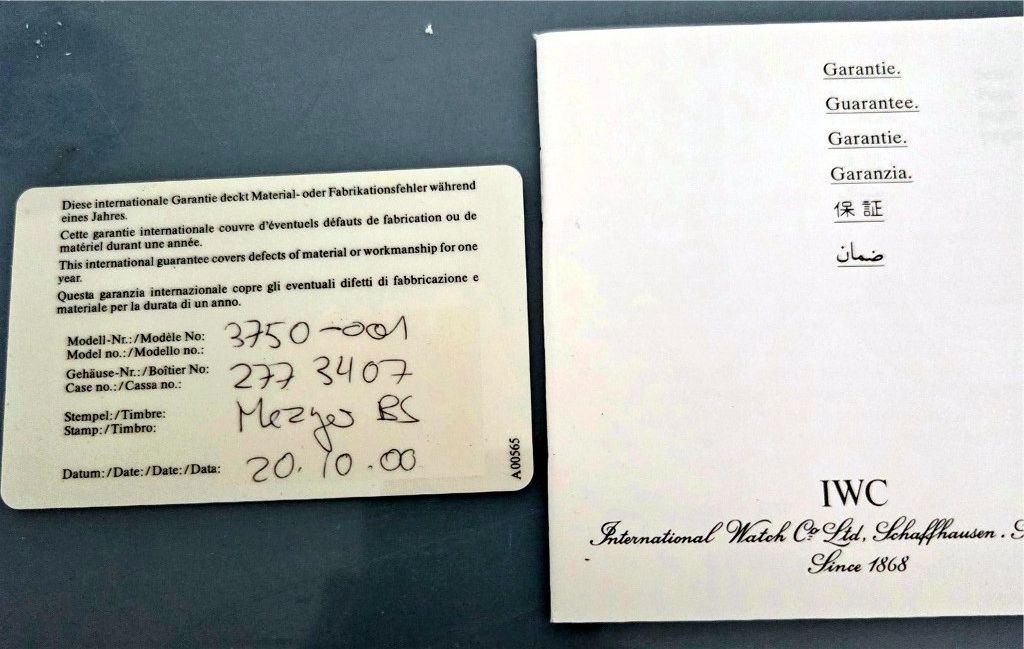 Diese internationale Garantie deckt Material- oder Fabrikationsfehler während
eines Jahres.
Cette garantie internationale couvre d'éventuels défauts de fabrication ou de
matériel durant une année.
This international guarantee covers defects of material or workmanship for one
year.
Questa garanzia internazionale copre gli eventuali difetti di fabbricazione e
materiale per la durata di un anno.
Modell-Nr.:/Modèle No: 3750-001
Model no.:/Modello no.:
Gehäuse-Nr.:/Boîtier No: 277 3407
Case no.:/Cassa no.:
Stempel:/Timbre: Mezger BS
Stamp:/Timbro:
Datum:/Date:/Date:/Data: 20.10.00
A00565
Garantie.
Guarantee.
Garantie.
Garanzia.
保証
ضمان
IWC
International Watch Co. Ltd, Schaffhausen.
Since 1868